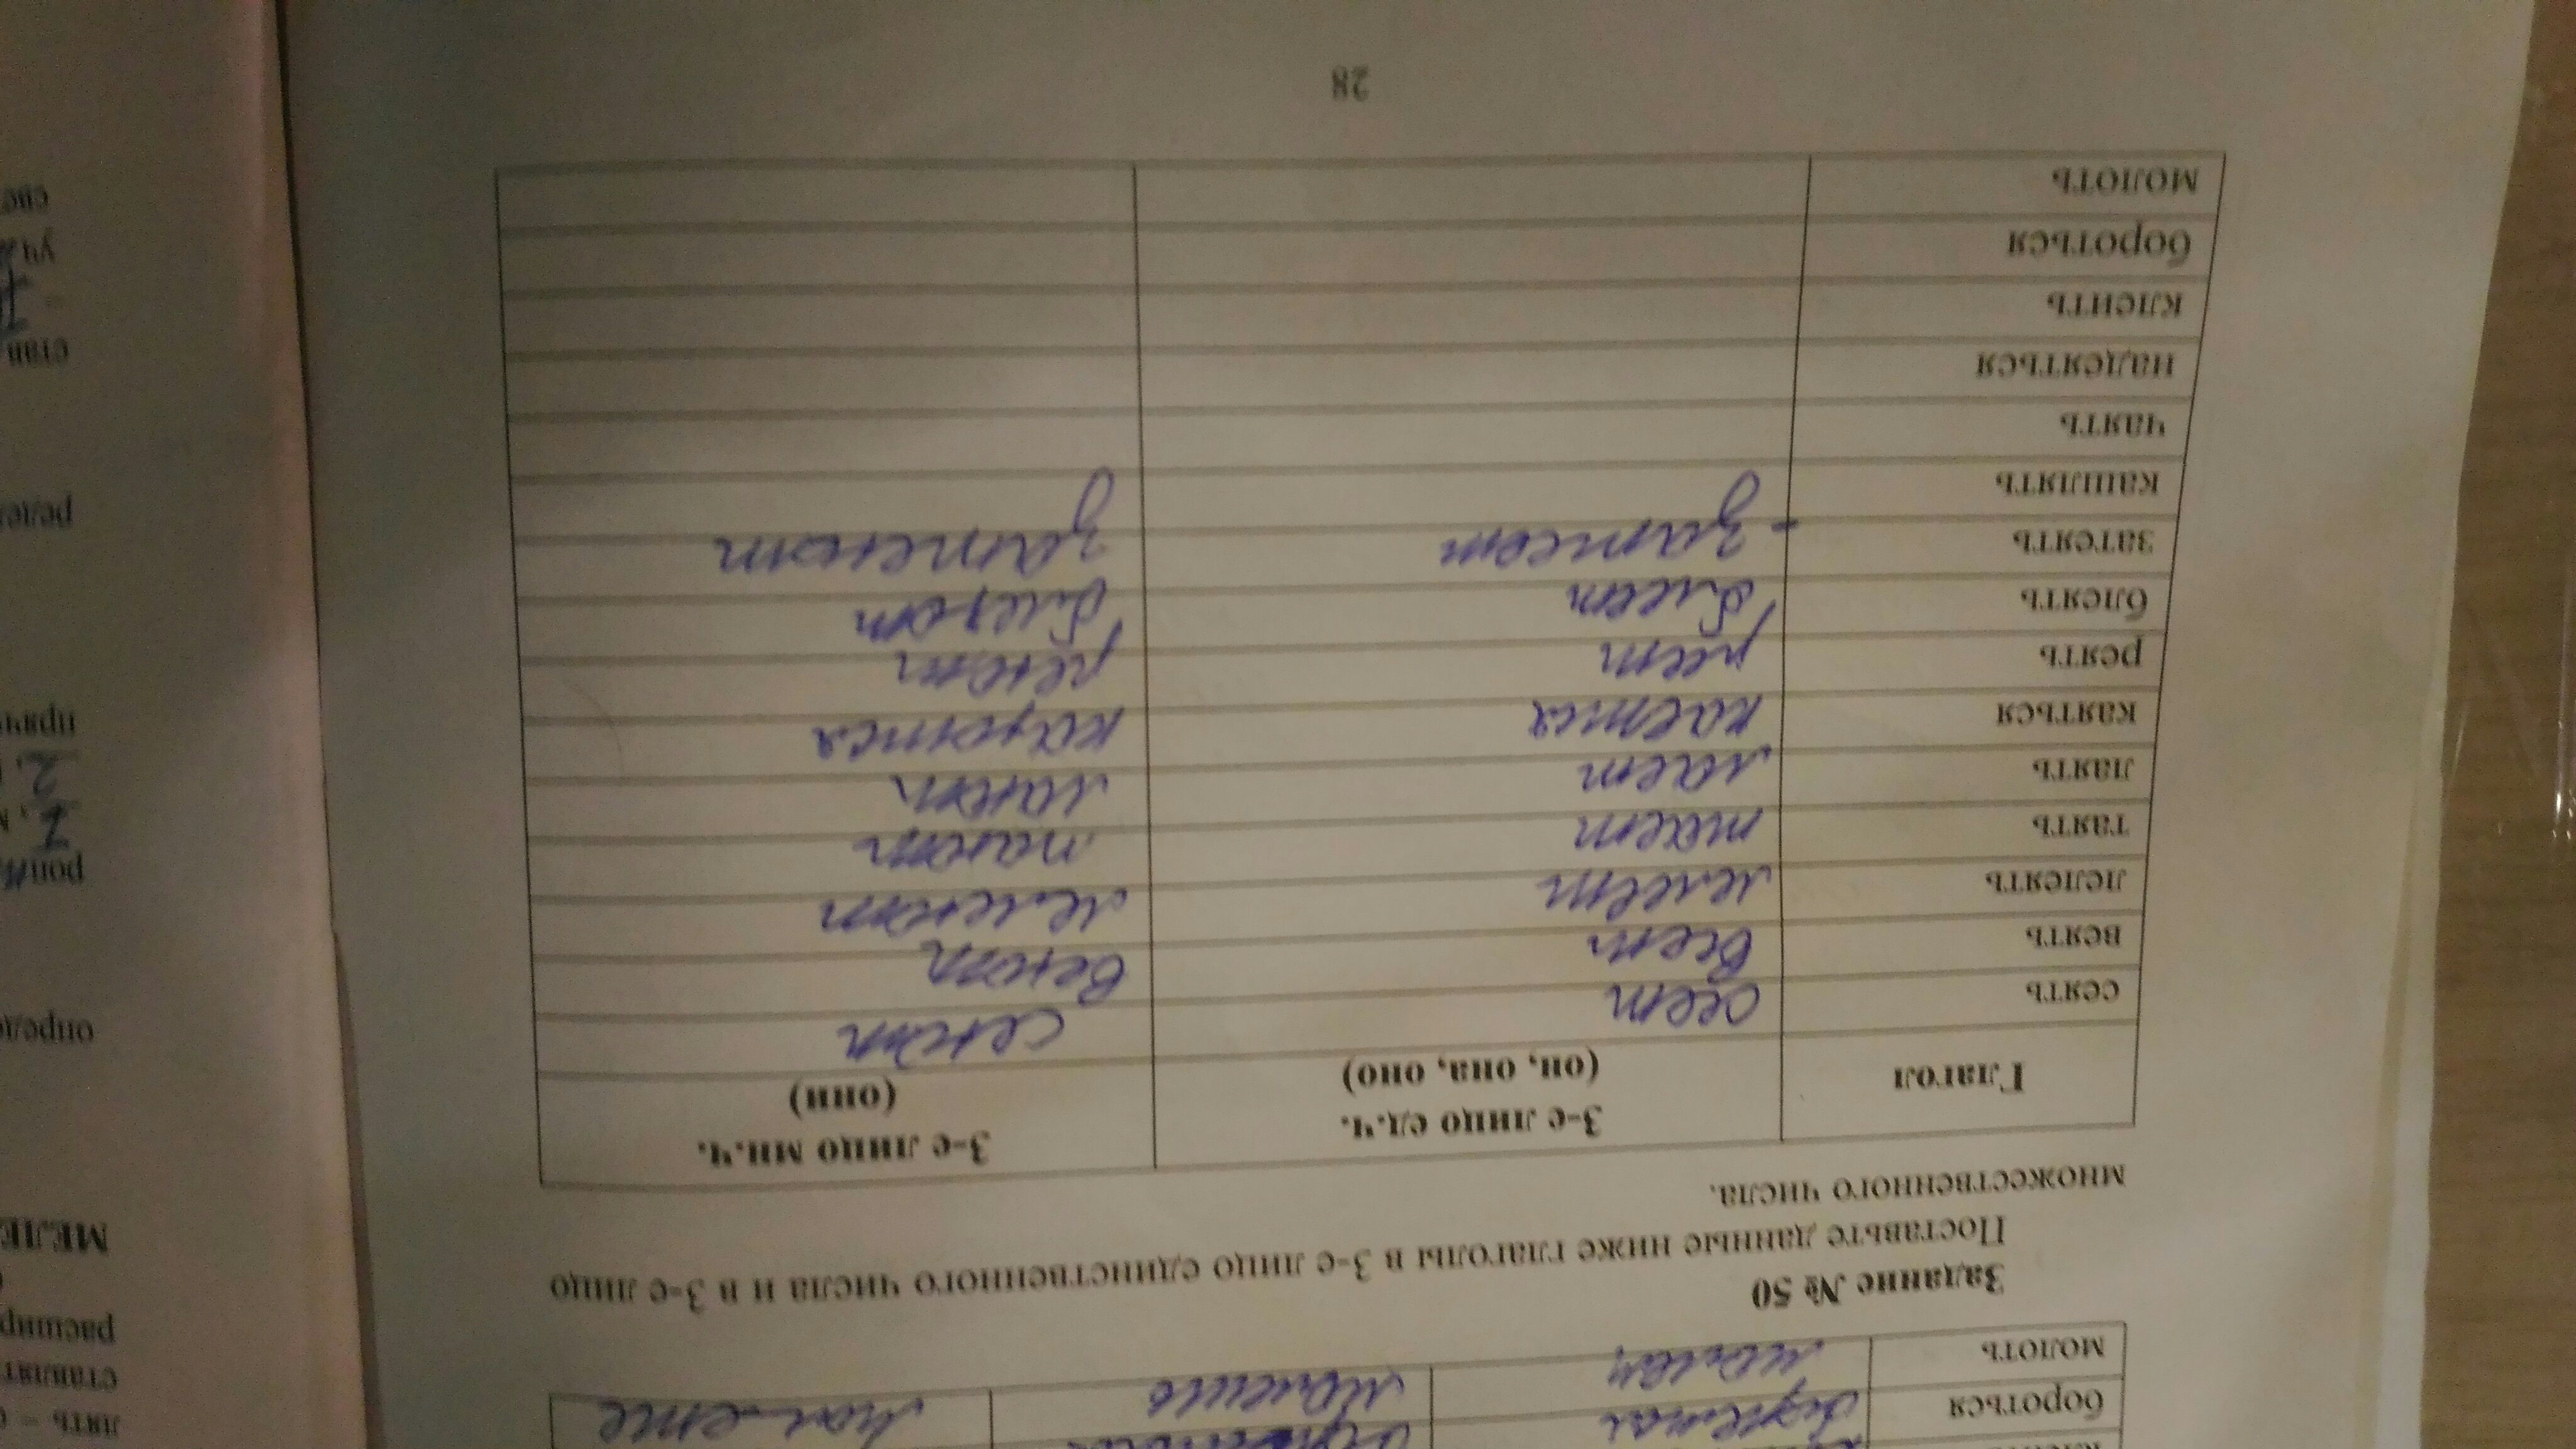 молоть
бороться
молоть
Задание № 50
Поставьте данные ниже глаголы в 3-е лицо единственного числа и в 3-е лицо
множественного числа.
Глагол 3-е лицо ед.ч. (он, она, оно) 3-е лицо мн.ч. (они)
сеять сеет сеют
веять веет веют
лелеять лелеет лелеют
таять тает тают
лаять лает лают
каяться кается каются
реять реет реют
блеять блеет блеют
затеять - затеет затеют
кашлять
чаять
надеяться
клеить
бороться
молоть
28
МЕЛЕ
расшир
ставлят
лять –
опреде
прячь
2
редел
став
уч
све